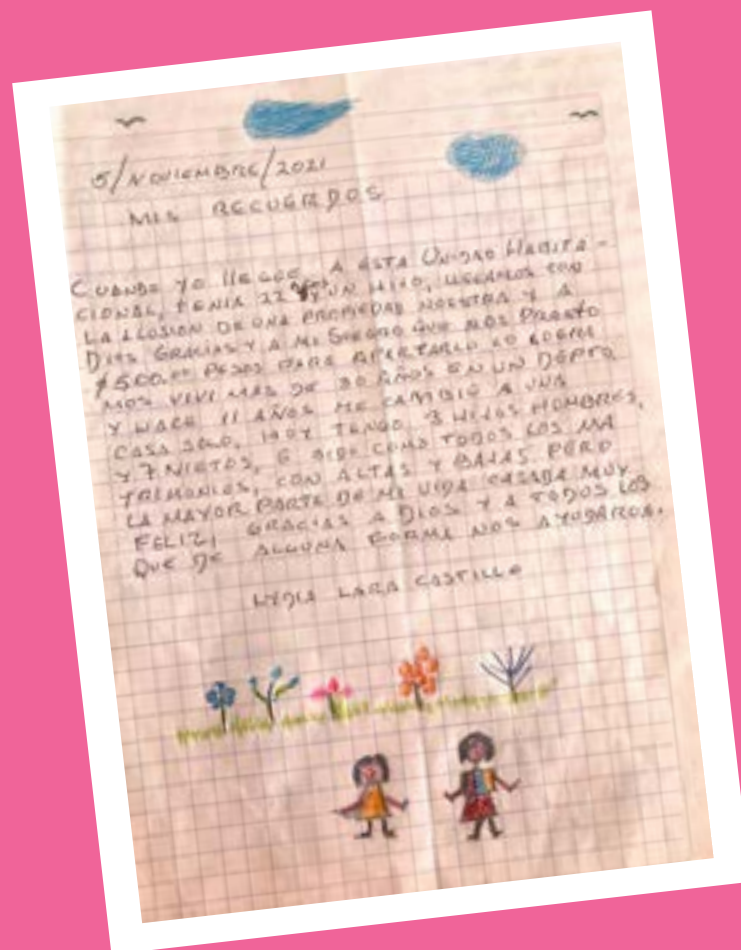 5/NOVIEMBRE/2021
MIS RECUERDOS
CUANDO YO LLEGUE A ESTA UNIDAD HABITA-
CIONAL, TENIA 22 Y UN HIJO, LLEGAMOS CON
LA ILUSION DE UNA PROPIEDAD NUESTRA Y A
DIOS GRACIAS Y A MI SUEGRO QUE NOS PRESTO
$500.00 PESOS PARA APARTARLO LO
MOS VIVI MAS DE 30 AÑOS EN UN DEPTO
Y HACE 11 AÑOS ME CAMBIÉ A UNA
CASA SOLO, HOY TENGO 3 HIJOS HOMBRES,
Y 7 NIETOS, E SIDO COMO TODOS LOS MA
TRIMONIOS, CON ALTAS Y BAJAS PERO
LA MAYOR PARTE DE MI VIDA CASADA MUY
FELIZ, GRACIAS A DIOS Y A TODOS LOS
QUE DE ALGUNA FORMA NOS AYUDARON.
LYDIA LARA CASTILLO